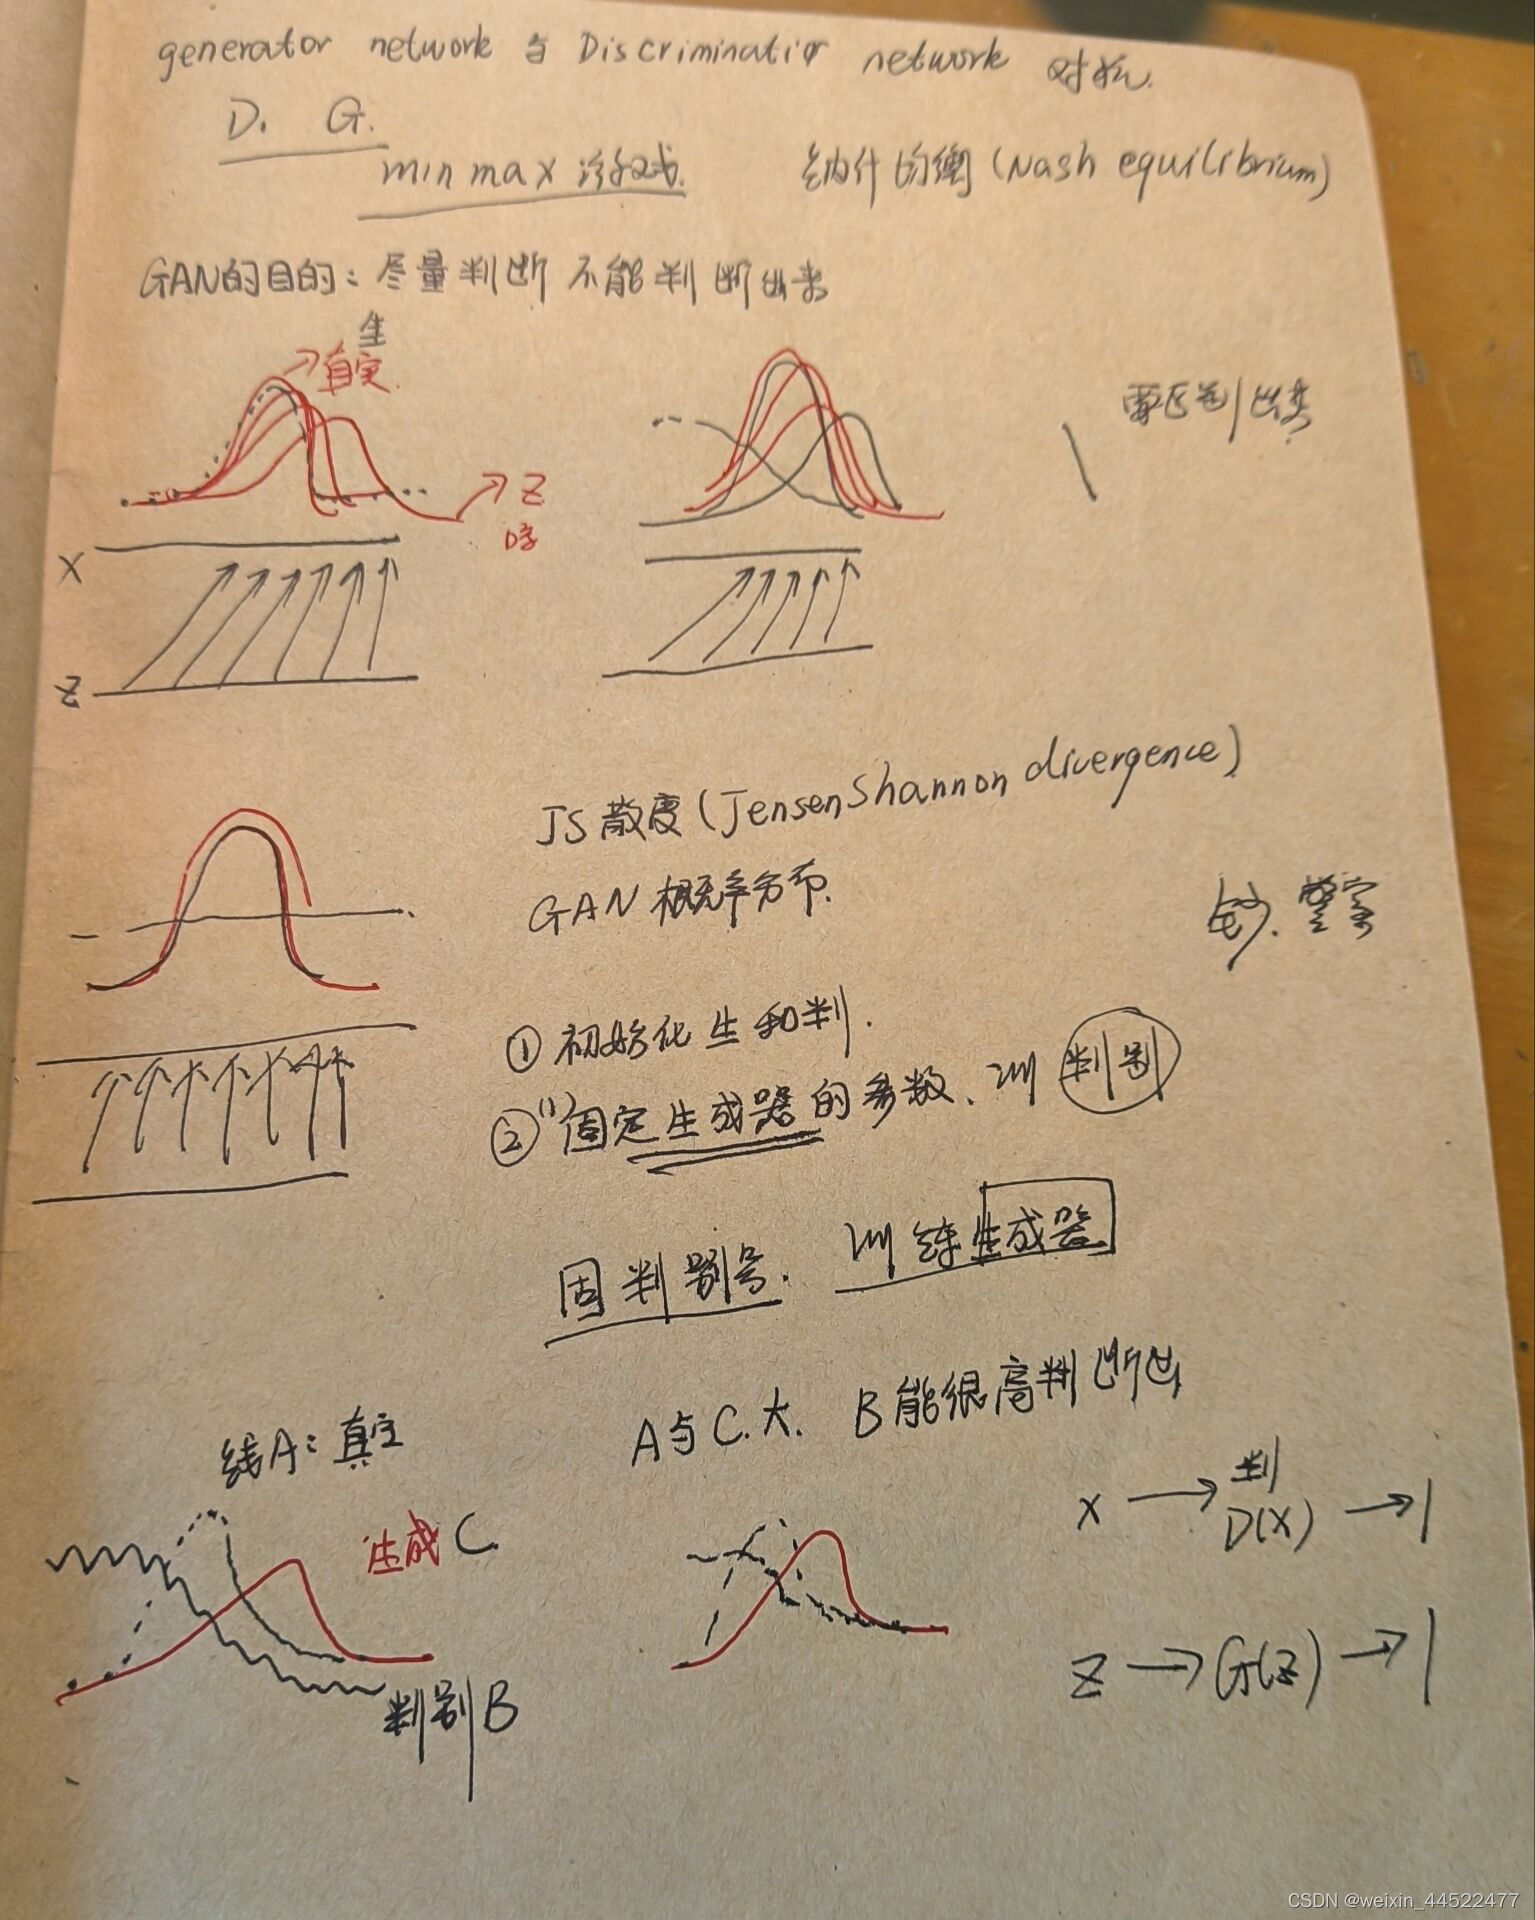 generator network 与 Discriminatior network 对抗.
D. G.
min max 游戏. 纳什均衡 (Nash equilibrium)
GAN的目的: 尽量判断 不能判断出来
生
真实
要区别出来
Z
X
Z
JS散度 (Jensen Shannon divergence)
GAN 概率分布.
警察
① 初始化 生和判.
② (1) 固定生成器的参数. 训 判别
固判别号. 训练生成器
A与C.大. B能很高判断出
线A: 真实
生成 C.
判别 B
判
X → D(X) → 1
Z → G(Z) → 1
CSDN @weixin_44522477